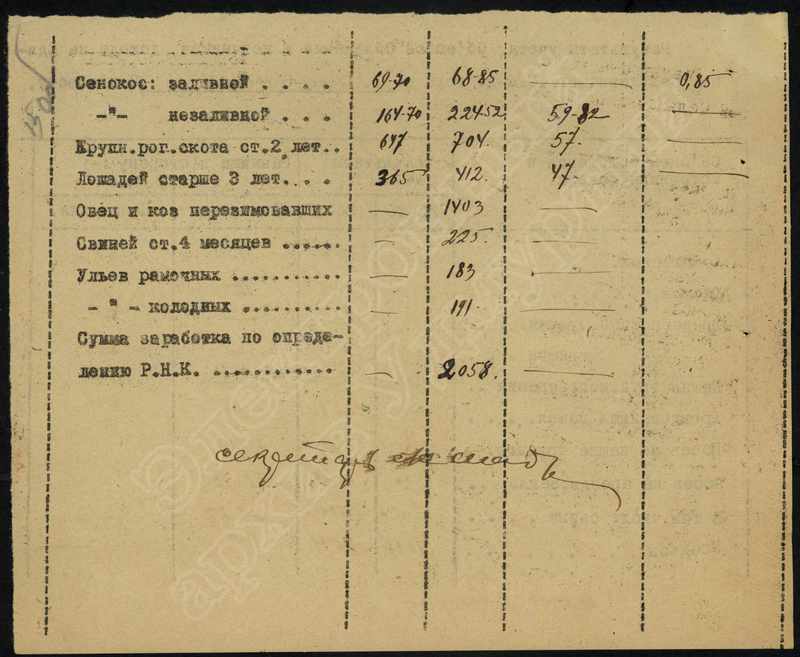 Сенокос: заливной . . . . 69-70 68-85 — 0,85
-"- незаливной . . . 164-70 224-52 59-82 —
Крупн.рог.скота ст.2 лет.. 647 704. 57. —
Лошадей старше 3 лет.. . . 365 412. 47. —
Овец и коз перезимовавших — 1403 —
Свиней ст.4 месяцев ...... — 225. —
Ульев рамочных ........... — 183 —
- " - колодных .......... — 191. —
Сумма заработка по опреде-
лению Р.Н.К. ............ — 2058. —
секретарь